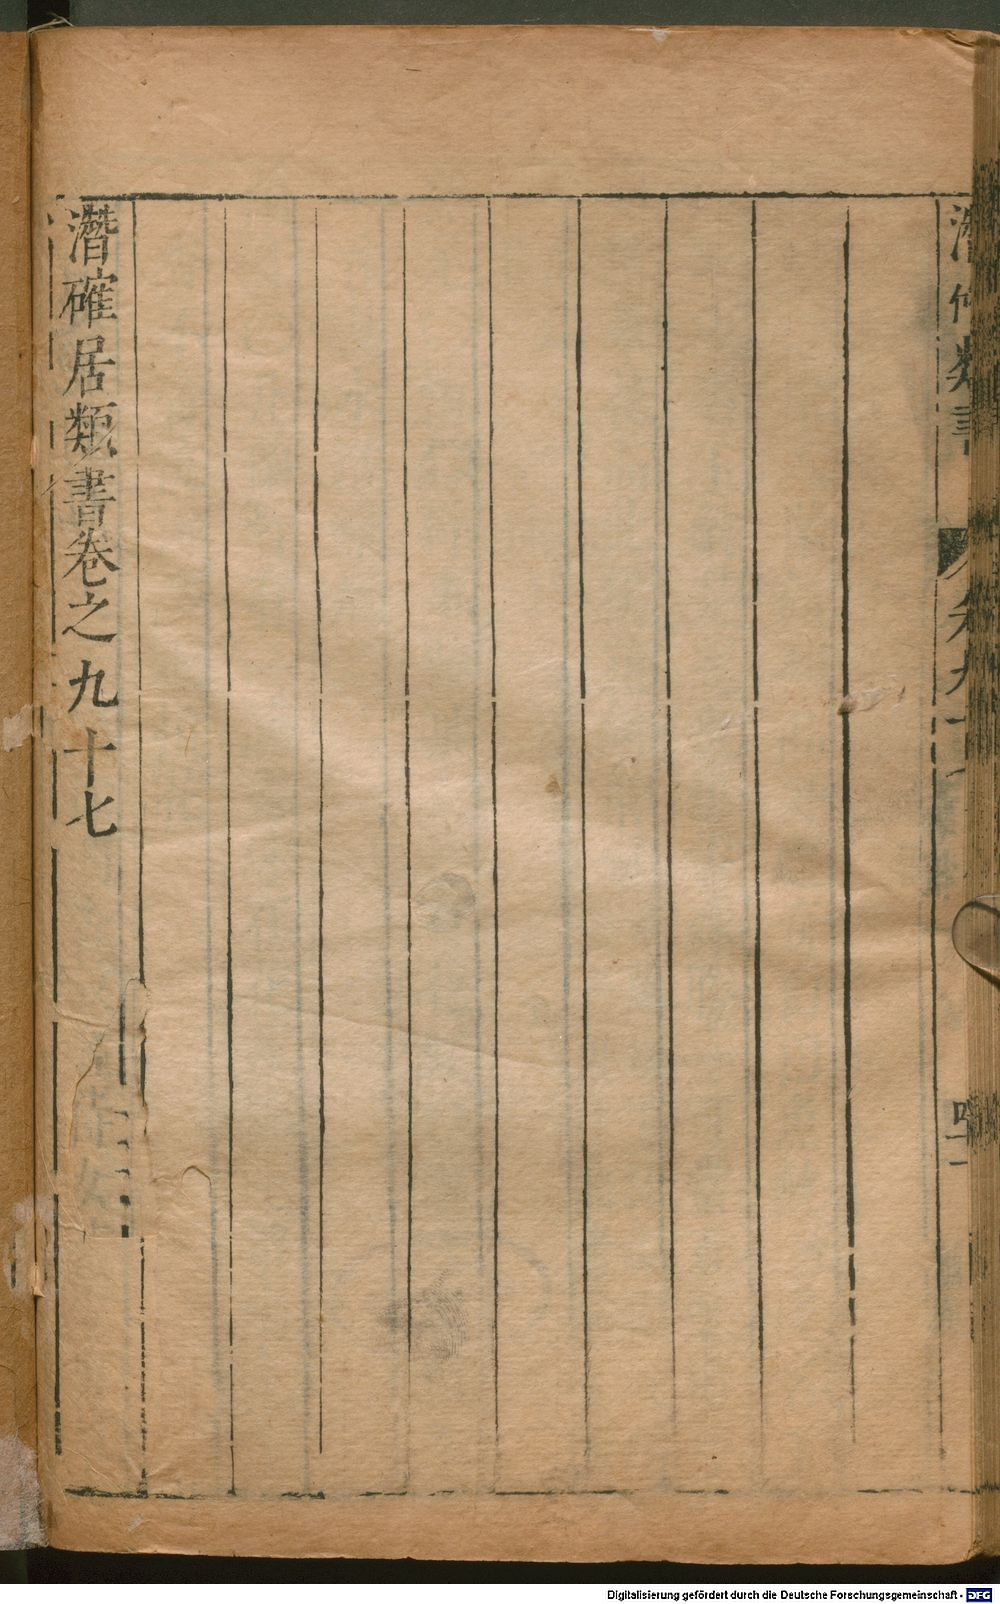 潛確居類書卷之九十七
類書
Digitalisierung gefördert durch die Deutsche Forschungsgemeinschaft - DFG